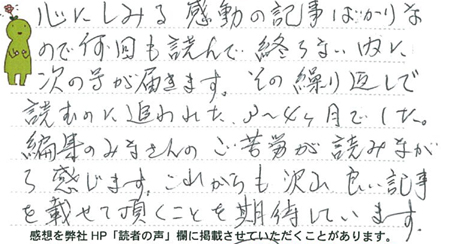 心にしみる感動の記事ばかりな
ので何回も読んで終らない内に
次の号が届きます。その繰り返しで
読むのに追われた、3〜4ヶ月でした。
編集のみなさんのご苦労が読みなが
ら感じます。これからも次々良い記事
を載せて頂くことを期待しています。
感想を弊社HP「読者の声」欄に掲載させていただくことがあります。